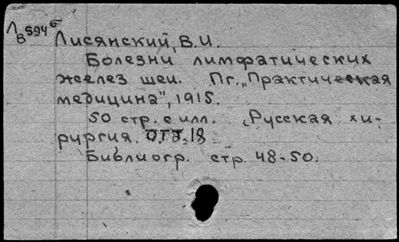 Л б
В594
Лисянский, В.И.
Болезни лимфатических
желез шеи. Пг., "Практическая
медицина", 1915.
50 стр. с илл. (Русская хи-
рургия. отд. 18
Библиогр. стр. 48-50.